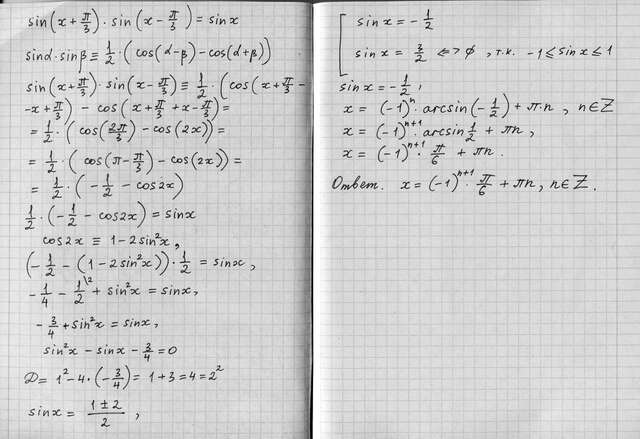 sin(x + π/3) · sin(x − π/3) = sinx
sinα · sinβ ≡ 1/2 · (cos(α−β) − cos(α+β))
sin(x + π/3) · sin(x − π/3) ≡ 1/2 · (cos(x + π/3 −
−x + π/3) − cos(x + π/3 + x − π/3)) =
= 1/2 · (cos(2π/3) − cos(2x)) =
= 1/2 · (cos(π − π/3) − cos(2x)) =
= 1/2 · (−1/2 − cos2x)
1/2 · (−1/2 − cos2x) = sinx
cos2x ≡ 1 − 2sin²x,
(−1/2 − (1 − 2sin²x)) · 1/2 = sinx,
−1/4 − 1/2 \2 + sin²x = sinx,
−3/4 + sin²x = sinx,
sin²x − sinx − 3/4 = 0
D = 1² − 4 · (−3/4) = 1 + 3 = 4 = 2²
sinx = (1 ± 2)/2 ,
[ sinx = −1/2
sinx = 3/2 <=> ∅ , т.к. −1 ≤ sinx ≤ 1
sinx = −1/2 ,
x = (−1)ⁿ · arcsin(−1/2) + π·n , n∈Z
x = (−1)ⁿ⁺¹ · arcsin 1/2 + πn ,
x = (−1)ⁿ⁺¹ · π/6 + πn .
Ответ. x = (−1)ⁿ⁺¹ · π/6 + πn , n∈Z .